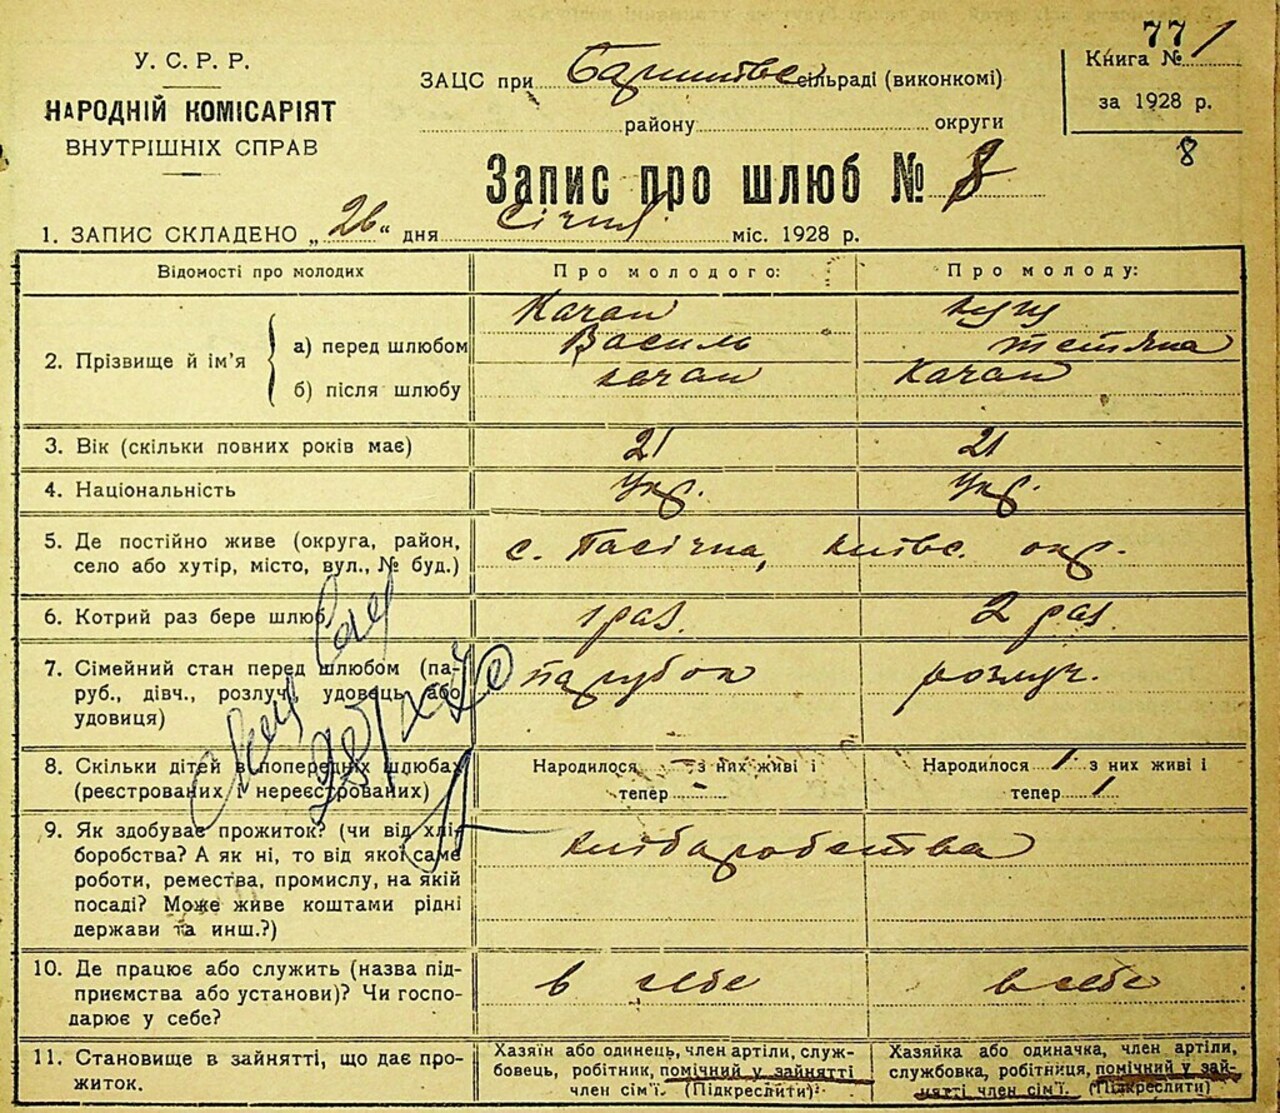 77 1
У. С. Р. Р.
НАРОДНІЙ КОМІСАРІЯТ
ВНУТРІШНІХ СПРАВ
ЗАЦС при сільраді (виконкомі)
району округи
Книга №
за 1928 р.
8
Запис про шлюб № 8
1. ЗАПИС СКЛАДЕНО „26“ дня січня міс. 1928 р.
Відомості про молодих
Про молодого:
Про молоду:
2. Прізвище й ім'я
а) перед шлюбом
Качан
Василь
Тетяна
б) після шлюбу
Качан
Качан
3. Вік (скільки повних років має)
21
21
4. Національність
Укр.
Укр.
5. Де постійно живе (округа, район,
село або хутір, місто, вул., № буд.)
с. Пасічна, Київс. окр.
6. Котрий раз бере шлюб
1 раз.
2 раз
7. Сімейний стан перед шлюбом (па-
руб., дівч., розлуч., удовець або
удовиця)
парубок
розлуч.
8. Скільки дітей в попередніх шлюбах
(реєстрованих і нереєстрованих)
Народилося - з них живі і
тепер -
Народилося 1 з них живі і
тепер 1
9. Як здобуває прожиток? (чи від хлі-
боробства? А як ні, то від якої саме
роботи, ремества, промислу, на якій
посаді? Може живе коштами рідні
держави та инш.?)
хліборобства
10. Де працює або служить (назва під-
приємства або установи)? Чи госпо-
дарює у себе?
в себе
в себе
11. Становище в зайнятті, що дає про-
житок.
Хазяїн або одинець, член артіли, служ-
бовець, робітник, помічний у зайнятті
член сім'ї. (Підкреслити)
Хазяйка або одиначка, член артіли,
службовка, робітниця, помічний у зай-
нятті член сім'ї. (Підкреслити)